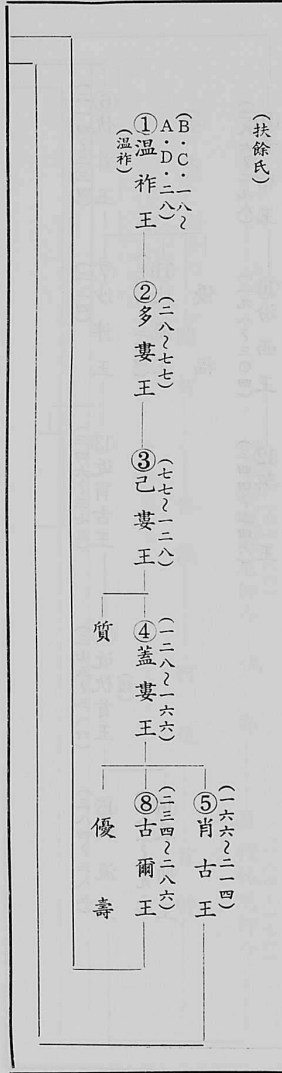 (扶餘氏)
(B·C·一八~
A·D·二八)
①溫祚王
(溫祚)
(二八~七七)
②多婁王
(七七~一二八)
③己婁王
(一二八~一六六)
④蓋婁王
質
(一六六~二一四)
⑤肖古王
(二三四~二八六)
⑧古爾王
優壽